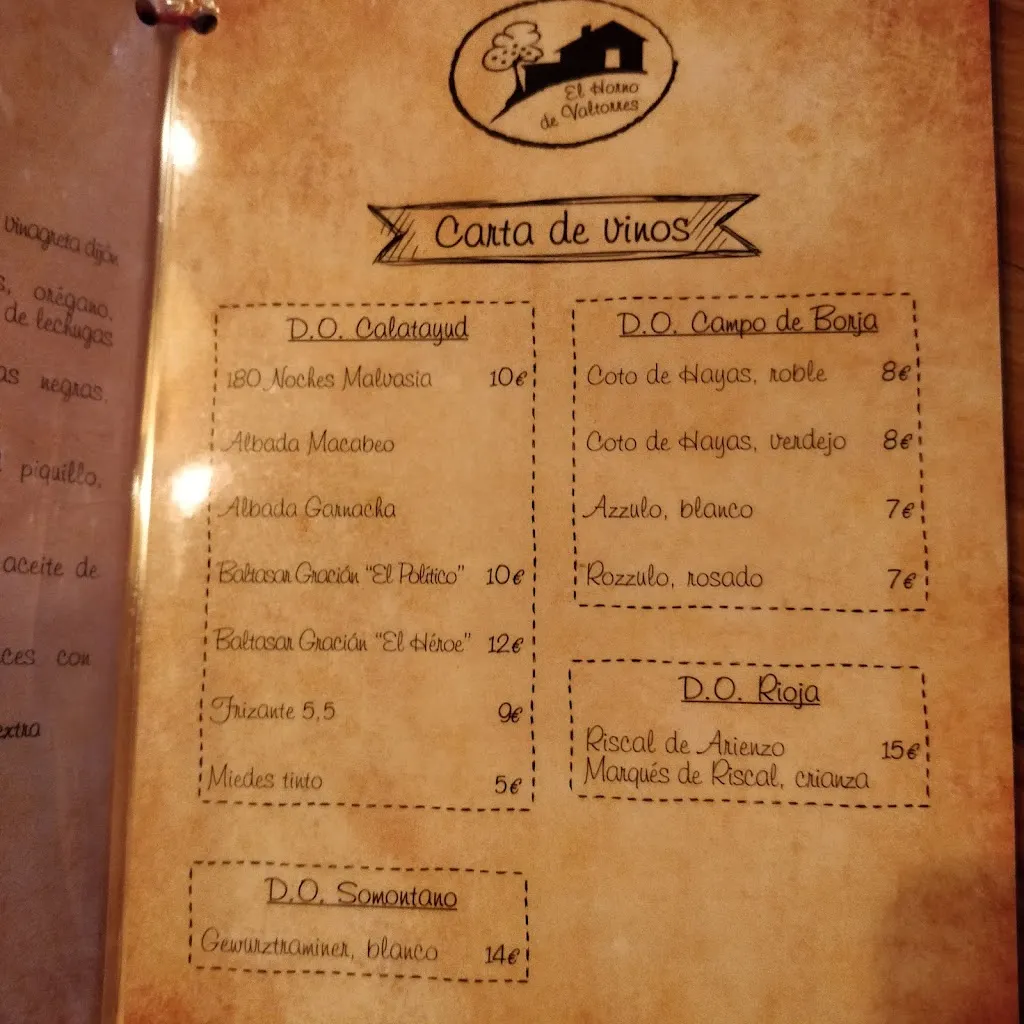 vinagreta dijón
orégano.
de lechugas
negras.
piquillo.
aceite de
con
extra
El Horno
de Valtorres
Carta de vinos
D.O. Calatayud
180 Noches Malvasia 10€
Albada Macabeo
Albada Garnacha
Baltasar Gracián "El Político" 10€
Baltasar Gracián "El Héroe" 12€
Frizante 5,5 9€
Miedes tinto 5€
D.O. Somontano
Gewurztraminer, blanco 14€
D.O. Campo de Borja
Coto de Hayas, roble 8€
Coto de Hayas, verdejo 8€
Azzulo, blanco 7€
Rozzulo, rosado 7€
D.O. Rioja
Riscal de Arienzo 15€
Marqués de Riscal, crianza